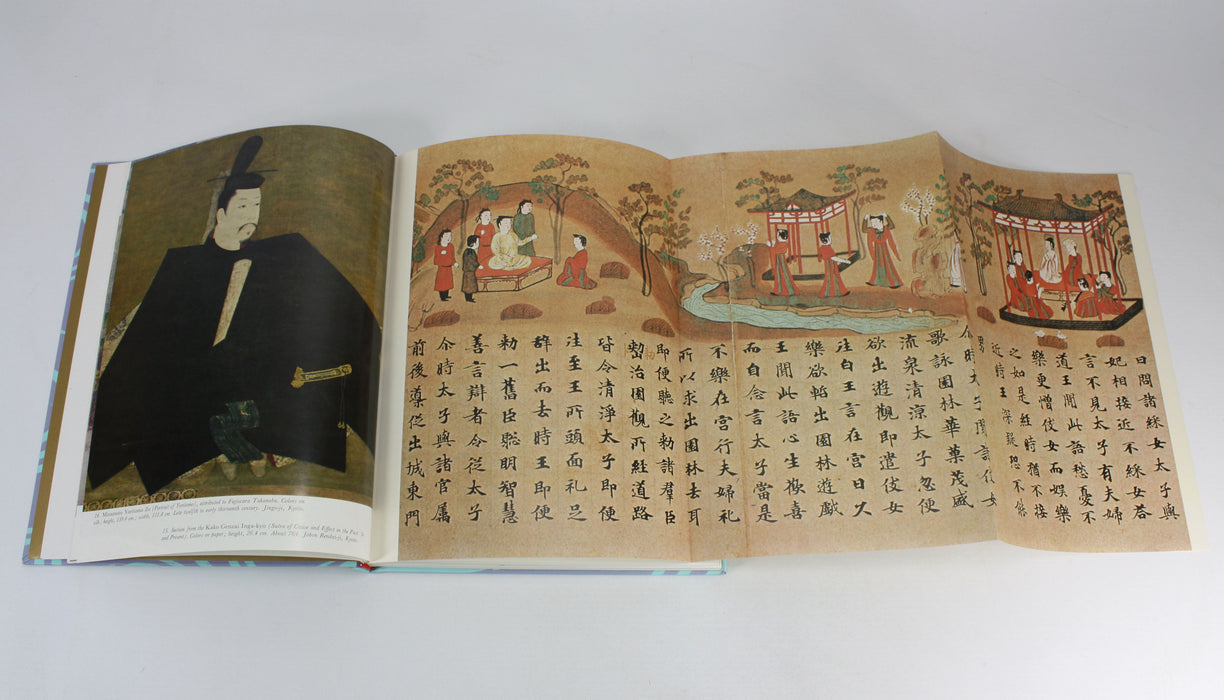 14. Minamoto Yoritomo Zo (Portrait of Yoritomo), attributed to Fujiwara Takanobu. Colors on
silk; height, cm.; width, 111.8 cm. Late twelfth to early thirteenth century. Jingo-ji, Kyoto.
15. Section from the Kako Genzai Inga-kyo (Sutra of Cause and Effect in the Past
and Present). Colors on paper; height, 26.4 cm. About Jobon Rendai-ji, Kyoto.
曰問諸綵女太子與
妃相接近不綵女荅
言不見太子有夫婦
道王聞此語愁憂不
樂更增伎女而娛樂
之如是經時猶不接
近時王深疑恐不能
男
尒時太子聞諸伎女
歌詠園林華菓茂盛
流泉清涼太子忽便
欲出遊觀即遣伎女
往白王言在宮日久
樂欲暫出園林遊戲
王聞此語心生歡喜
而自念言太子當是
不樂在宮行夫婦礼
所以求出園林去耳
即便聽之勑諸羣臣
治園觀所經道路
皆令清淨太子即便
往至王所頭面礼足
辞出而去時王即便
勑一舊臣聡明智慧
善言辯者令從太子
尒時太子與諸官属
前後導從出城東門